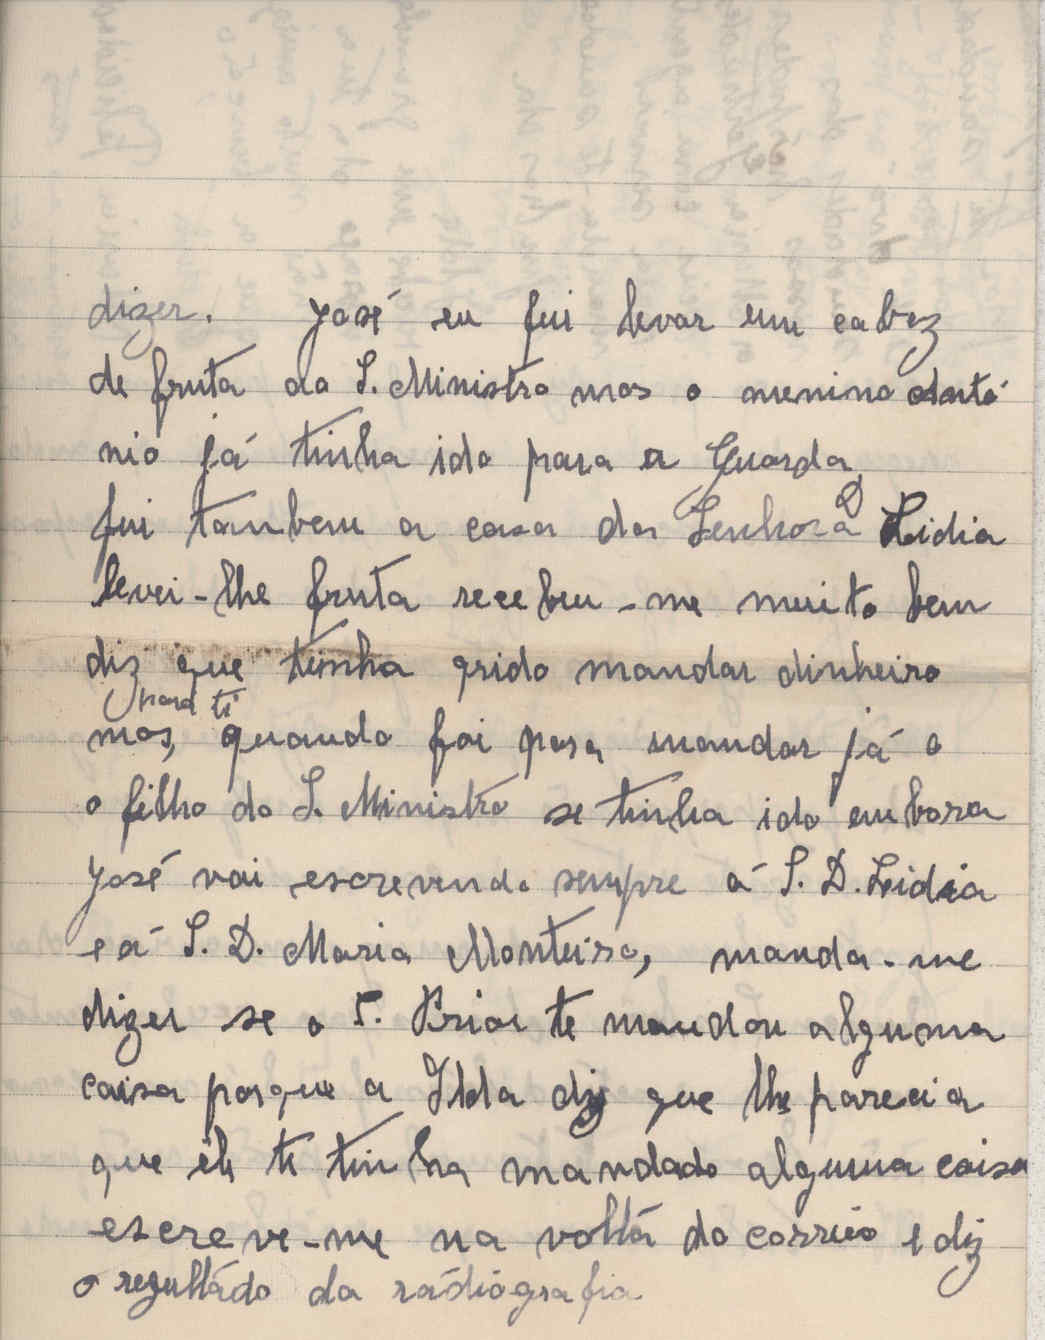 dizer. José eu fui levar um cabaz
de fruta ao S. Ministro mas o menino Antó
nio já tinha ido para a Guarda
fui tanbem a casa da Senhora D Lidia
levei-lhe fruta recebeu-me muito bem
diz que tinha qrido mandar dinheiro
para ti
mas, quando foi para mandar já o
o filho do S. Ministro se tinha ido embora
José vai escrevendo sempre á S. D. Lidia
e á S. D. Maria Monteiro, manda-me
dizer se o S. Prior te mandou alguma
caisa porque a Ilda diz que lhe parecia
que êle te tinha mandado alguma coisa
escreve-me na voltá do correio e diz
o rezultádo da rádiografia